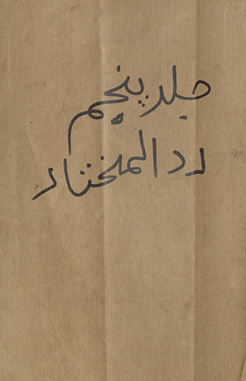 جلد پنجم
رد المختار